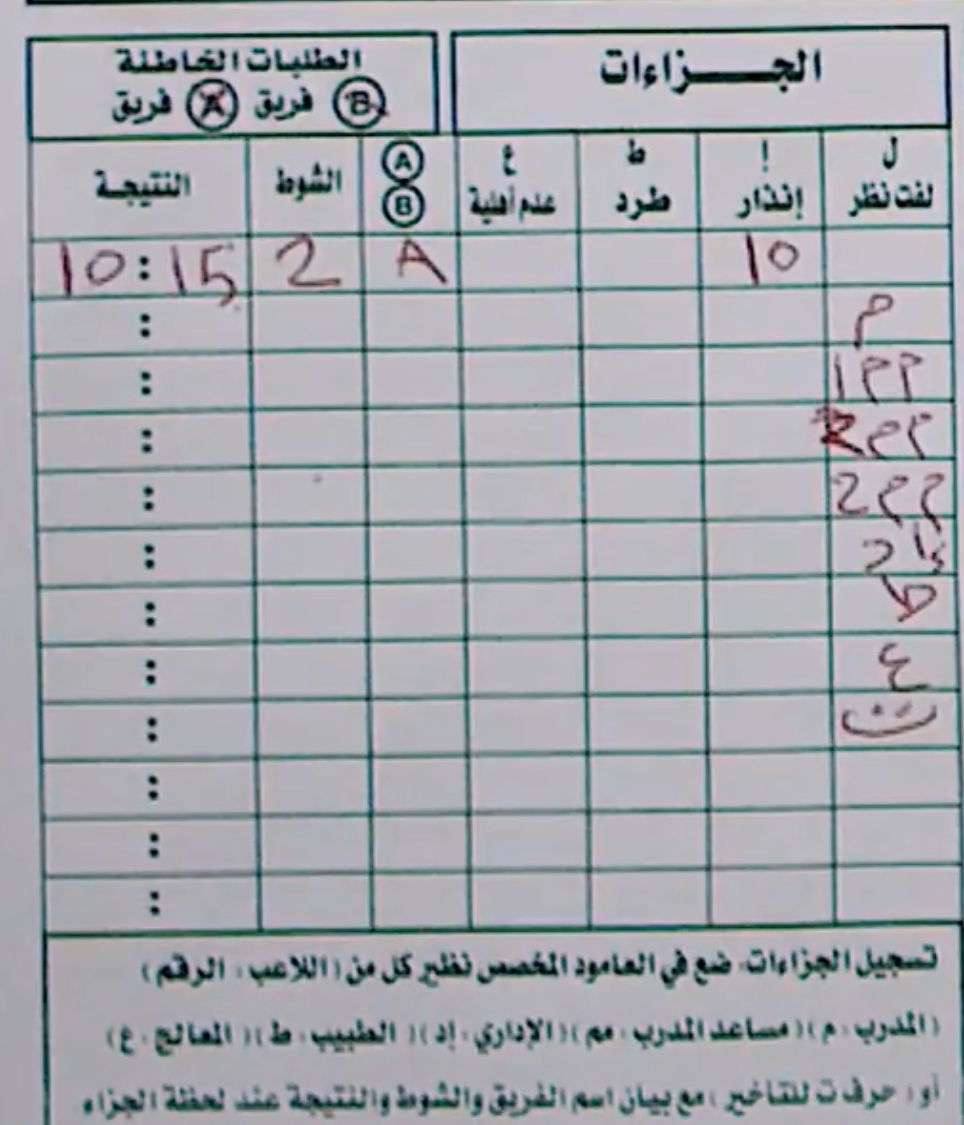 الجـــــزاءات
الطلبات الخاطئة
Ⓑ فريق Ⓐ فريق
ل ! ط ع Ⓐ الشوط النتيجة
لفت نظر إنذار طرد عدم أهلية Ⓑ
10 A 2 10:15
م :
م م 1 :
م م :
م م 2 :
:
ط :
ع :
ت :
:
:
:
تسجيل الجزاءات، ضع في العامود المخصص نظير كل من (اللاعب، الرقم)
(المدرب، م) (مساعد المدرب، مم) (الإداري، إد) (الطبيب، ط) (المعالج، ع)
أو (حرف ت للتأخير) مع بيان اسم الفريق والشوط والنتيجة عند لحظة الجزاء